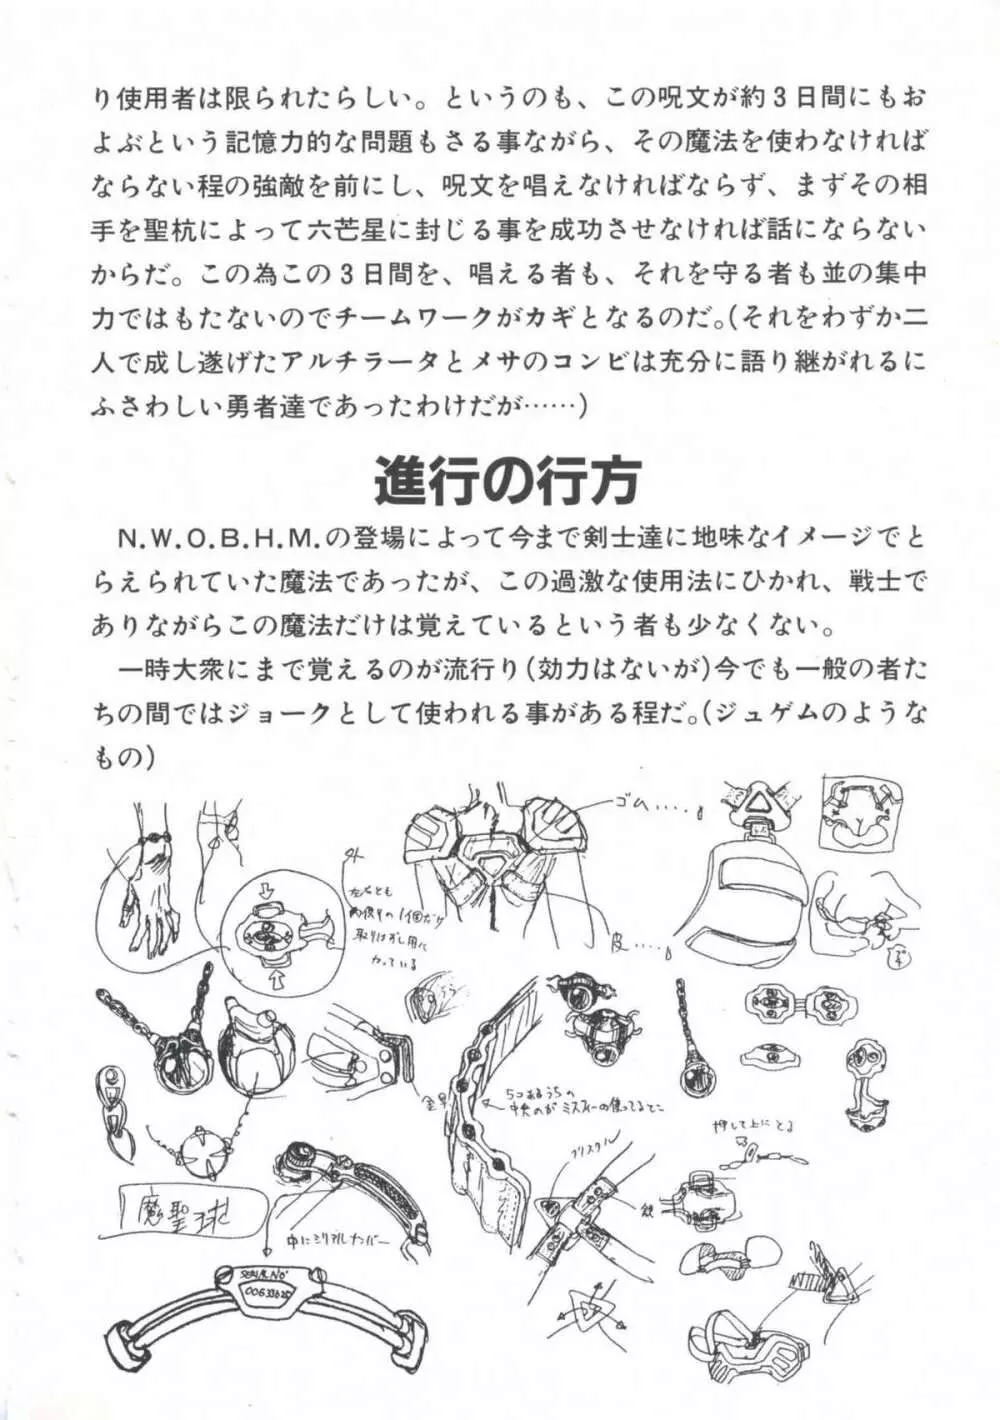 り使用者は限られたらしい。というのも、この呪文が約3日間にもお
よぶという記憶力的な問題もさる事ながら、その魔法を使わなければ
ならない程の強敵を前にし、呪文を唱えなければならず、まずその相
手を聖杭によって六芒星に封じる事を成功させなければ話にならない
からだ。この為この3日間を、唱える者も、それを守る者も並の集中
力ではもたないのでチームワークがカギとなるのだ。(それをわずか二
人で成し遂げたアルチラータとメサのコンビは充分に語り継がれるに
ふさわしい勇者達であったわけだが……)
進行の行方
N.W.O.B.H.M.の登場によって今まで剣士達に地味なイメージでと
らえられていた魔法であったが、この過激な使用法にひかれ、戦士で
ありながらこの魔法だけは覚えているという者も少なくない。
一時大衆にまで覚えるのが流行り(効力はないが)今でも一般の者た
ちの間ではジョークとして使われる事がある程だ。(ジュゲムのような
もの)
ゴム……
外
左右とも
1個だけ
取りはずし用に
なっている
皮……
うら
金具
5つあるうちの
中央のがミスティーの使ってるとこ
押して上にとる
クリスタル
鉄
魔聖球
中にシリアルナンバー
SERIAL No